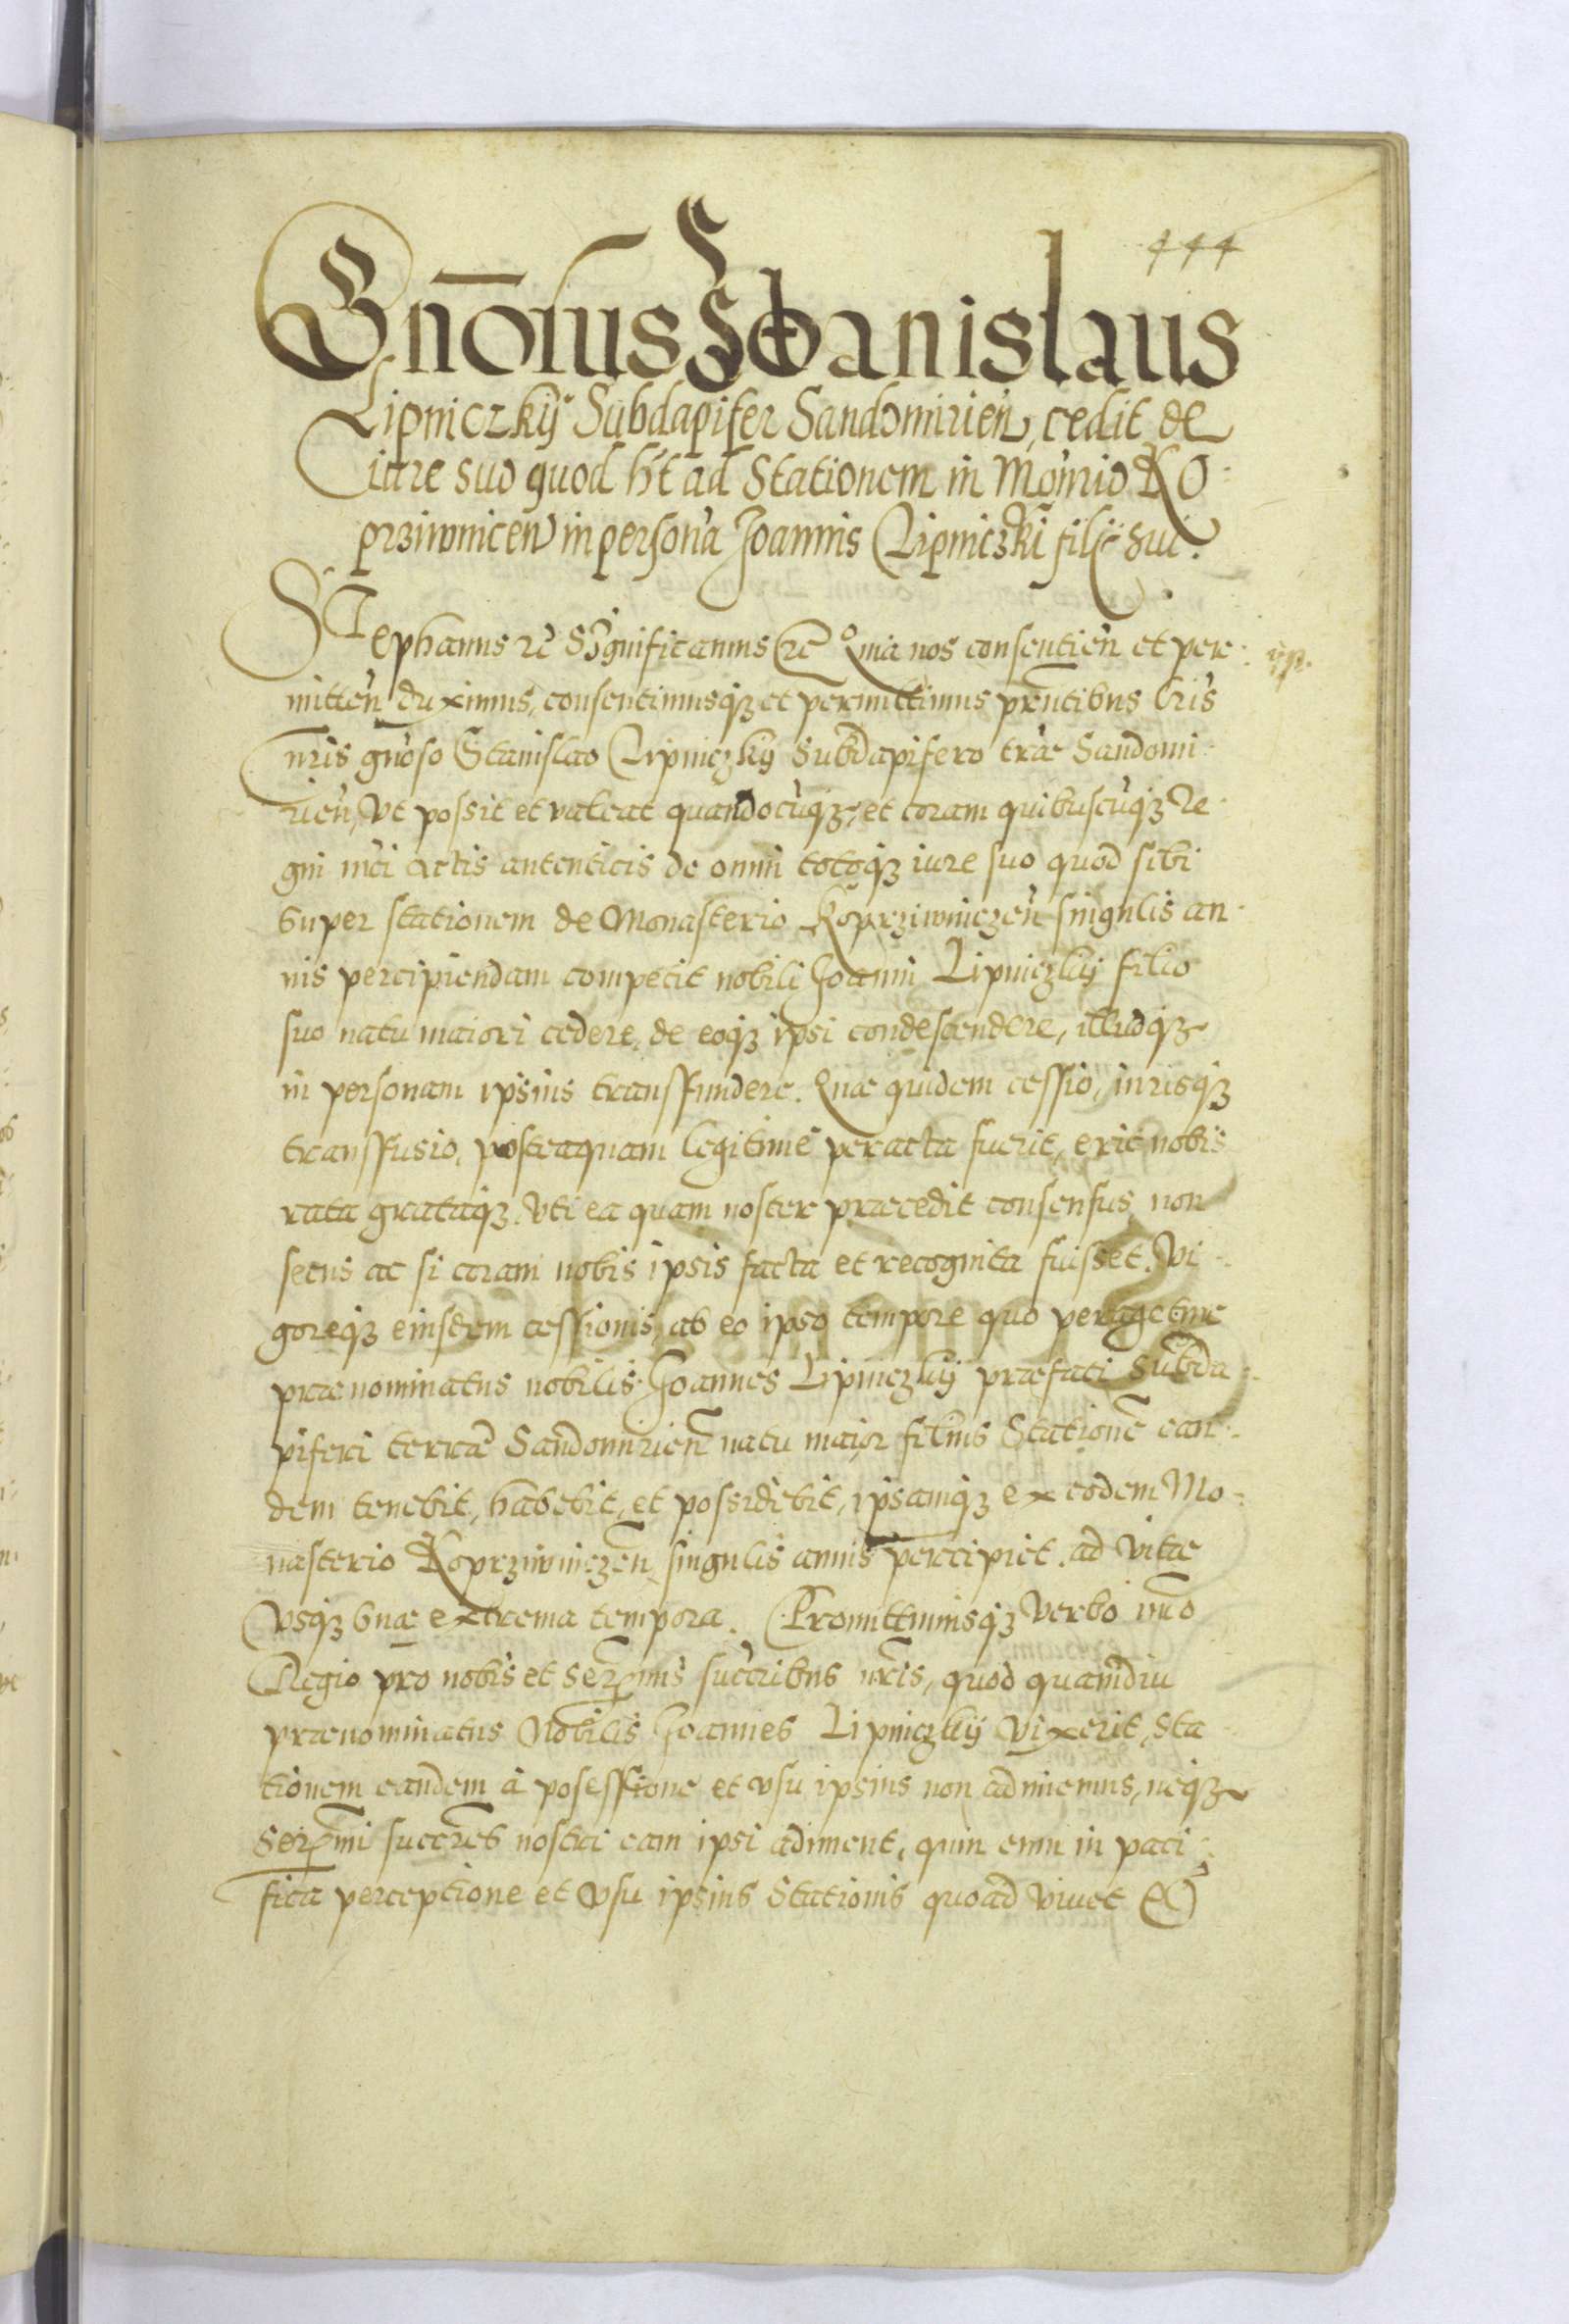 444
Gn̄osus Stanislaus
Lipniczkÿ Subdapifer Sandomirień, cedit de
iure suo quod h́t ad Stationem in Mońrio Ko-
prziwniceń in persona Joannis Lipniczki filÿ sui.
Stephanus rc̄ Significamus rc̄ Quia nos consentień et per-
mitteń duximus, consentimusqȝ et permittimus prn̄tibus lris̄
nrīs gńoso Stanislao Lipniczkÿ Subdapifero trāe Sandomi-
rień, Vt possit et valeat quandocūqȝ, et coram quibuscūqȝ Re-
gni nrī Actis autenticis de omni totoqȝ iure suo quod sibi
super stationem de Monasterio Koprziwniczeń singulis an-
nis percipiendam competit nobili Joanni Lipniczkÿ filio
suo natu maiori cedere, de eoqȝ ipsi condescendere, illudqȝ
in personam ipsius transfundere. Quae quidem cessio, iurisqȝ
transfusio, posteaquam legitimè peracta fuerit, erit nobis
rata grataqȝ. Vti ea quam noster praecedit consensus, non
secus ac si coram nobis ipsis facta et recognita fuisset. Vi-
goreqȝ eiusdem cessionis, ab eo ipso tempore quo peragetur
praenominatus nobilis Joannes Lipniczkÿ praefati Subda-
piferi terrae Sandomirień natu maior filius Stationē ean-
dem tenebit, habebit, et possidebit, ipsamqȝ ex eodem Mo-
nasterio Koprziwniczen̄ singulis annis percipiet. ad vitae
Vsqȝ suae extrema tempora. Promittimusqȝ Verbo nrō
Regio pro nobis et Serēnmis succribus nrīs, quod quamdiu
praenominatus Nobilis Joannes Lipniczkÿ Vixerit, Sta-
tionem eandem à posessione et vsu ipsius non adimemus, neqȝ
Serēnmi succres̄ nostri eam ipsi adiment, quin eum in paci-
fica perceptione et vsu ipsius Stationis quoad viuet